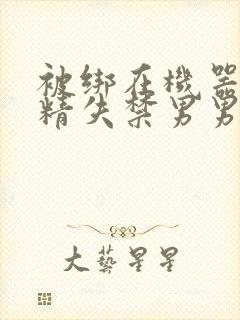 被绑在機器
精失禁男男
大藝星星